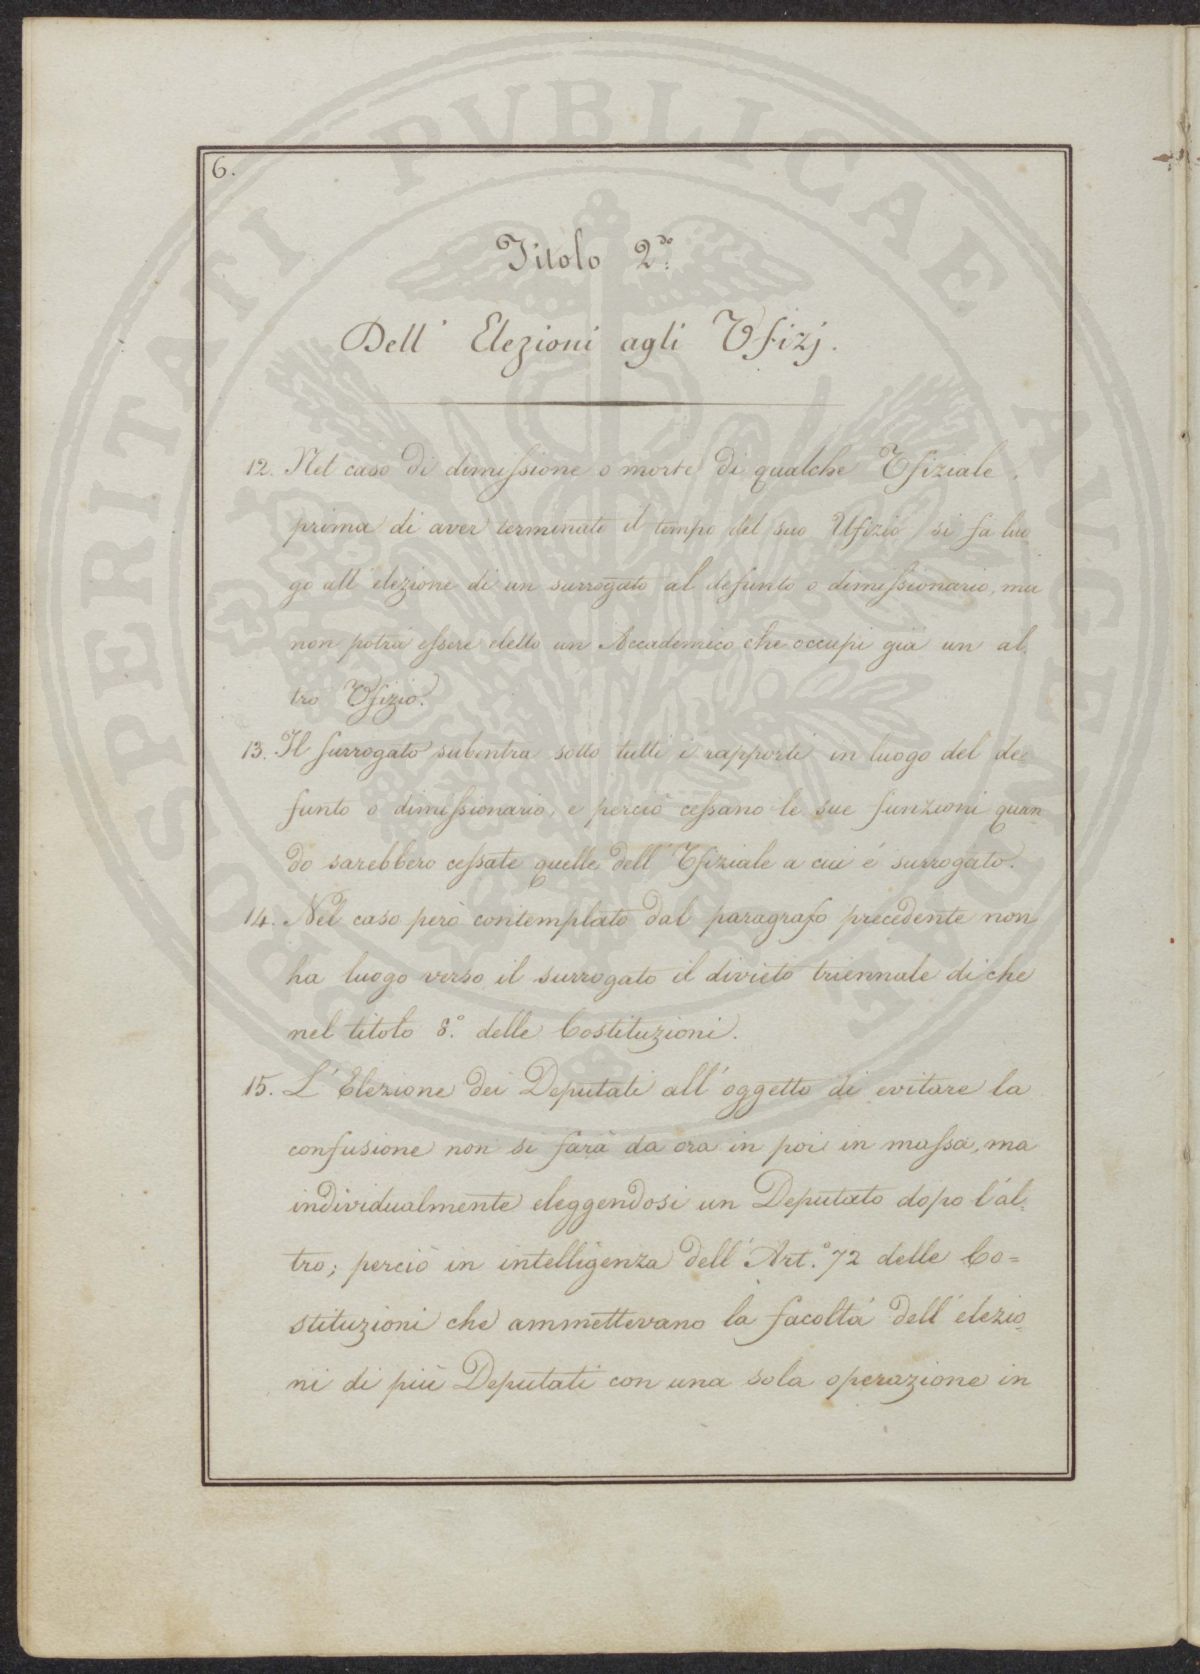 6.
Titolo 2.do
Dell' Elezioni agli Ufizj.
12. Nel caso di dimissione o morte di qualche Ufiziale,
prima di aver terminato il tempo del suo Ufizio, si fa luo
go all' elezione di un surrogato al defunto o dimissionario, ma
non potrà essere eletto un Accademico che occupi già un al
tro Ufizio.
13. Il surrogato subentra sotto tutti i rapporti in luogo del de=
funto o dimissionario, e perciò cessano le sue funzioni quan=
do sarebbero cessate quelle dell' Ufiziale a cui é surrogato.
14. Nel caso però contemplato dal paragrafo precedente non
ha luogo verso il surrogato il divieto triennale di che
nel titolo 8.° delle Costituzioni.
15. L' Elezione dei Deputati all' oggetto di evitare la
confusione non si farà da ora in poi in massa, ma
individualmente eleggendosi un Deputato dopo l' al=
tro; perciò in intelligenza dell' Art.° 72 delle Co=
stituzioni che ammettevano la facoltà dell' elezio=
ni di più Deputati con una sola operazione in
PROSPERITATI PVBLICAE AVGENDAE